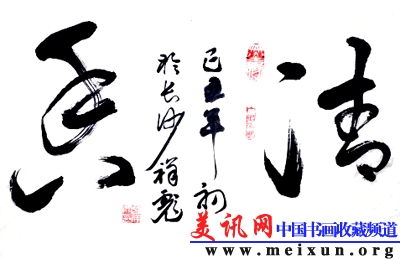 清香
己丑年初
於长沙祥彪
美讯网中国书画收藏频道
www.meixun.org